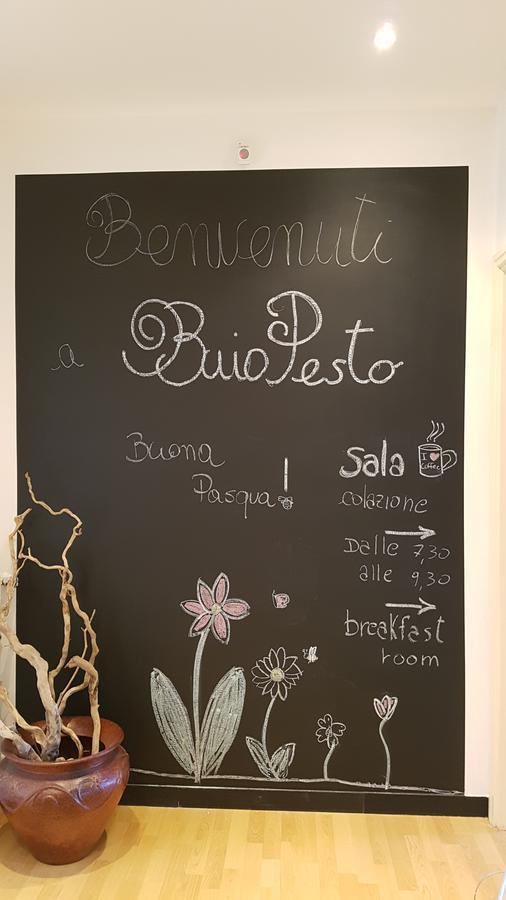 Benvenuti
a BuioPesto
Buona
Pasqua!
Sala
I
Coffee
colazione
Dalle 7,30
alle 9,30
breakfast
room